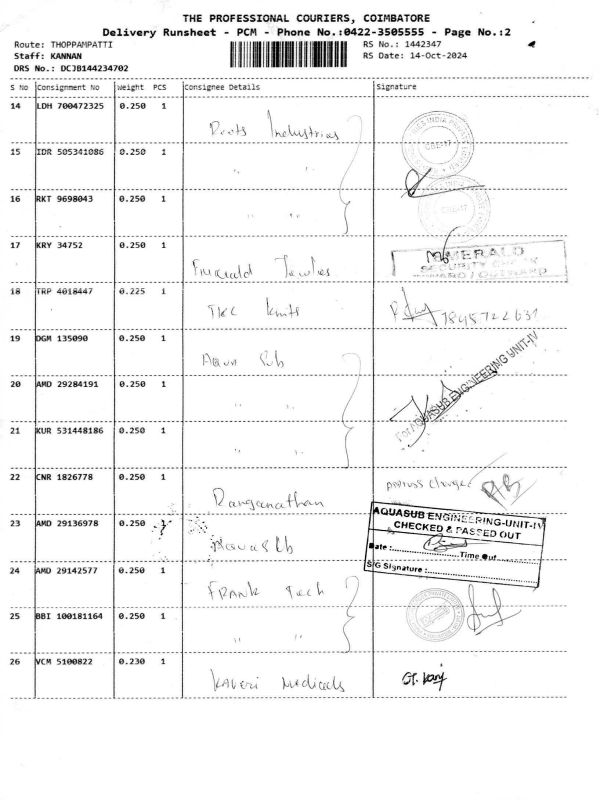 THE PROFESSIONAL COURIERS, COIMBATORE
Delivery Runsheet - PCM - Phone No.:0422-3505555 - Page No.:2
Route: THOPPAMPATTI
RS No.: 1442347
Staff: KANNAN
RS Date: 14-Oct-2024
DRS No.: DCJB144234702
S No Consignment No Weight PCS Consignee Details Signature
14 LDH 700472325 0.250 1
Roots Industries
15 IDR 505341086 0.250 1
" "
16 RKT 9698043 0.250 1
" "
17 KRY 34752 0.250 1
EMERALD
SECURITY CHECK
INWARD / OUTWARD
18 TRP 4018447 0.225 1
TKC Knits
19 DGM 135090 0.250 1
Aqua Sub
20 AMD 29284191 0.250 1
" "
For AQUASUB ENGINEERING UNIT-IV
21 KUR 531448186 0.250 1
" "
22 CNR 1826778 0.250 1
Ranganathan
Address Change
23 AMD 29136978 0.250
Aquasub
AQUASUB ENGINEERING-UNIT-IV
CHECKED & PASSED OUT
Date : Time Out
S/G Signature :
24 AMD 29142577 0.250 1
FRANK Tech
25 BBI 100181164 0.250 1
" "
26 VCM 5100822 0.230 1
Kaveri Medicals